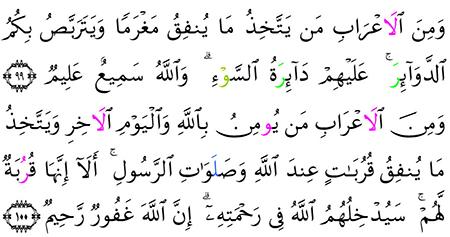 وَمِنَ اَ۬لَاعْرَابِ مَن يَتَّخِذُ مَا يُنفِقُ مَغْرَمًا وَيَتَرَبَّصُ بِكُمُ
اُ۬لدَّوَآئِرَۖ عَلَيْهِمْ دَآئِرَةُ اُ۬لسَّوْءِۖ وَاللَّهُ سَمِيعٌ عَلِيمٌ ٩٩
وَمِنَ اَ۬لَاعْرَابِ مَن يُومِنُ بِاللَّهِ وَالْيَوْمِ اِ۬لَاخِرِ وَيَتَّخِذُ
مَا يُنفِقُ قُرُبَٰتٍ عِندَ اَ۬للَّهِ وَصَلَوَٰتِ اِ۬لرَّسُولِۖ أَلَآ إِنَّهَا قُرُبَةٌ
لَّهُمْۖ سَيُدْخِلُهُمُ اُ۬للَّهُ فِى رَحْمَتِهِۦٓۖ إِنَّ اَ۬للَّهَ غَفُورٌ رَّحِيمٌ ١٠٠